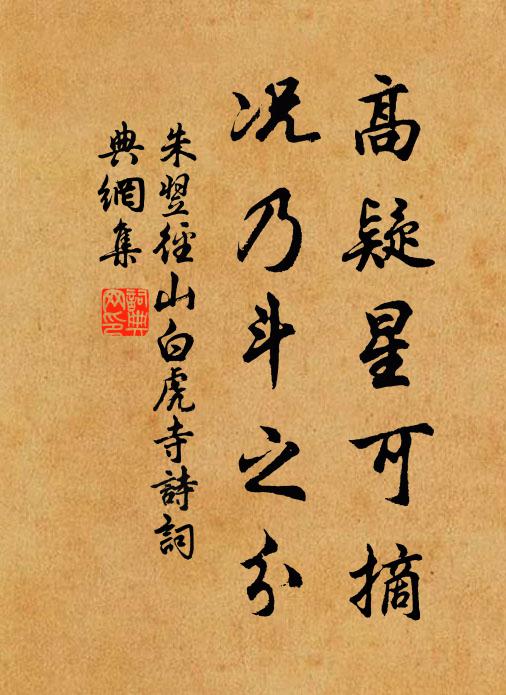 高疑星可摘
况乃斗之分
朱翌徑山白虎寺詩詞
典網集
詞典
网印